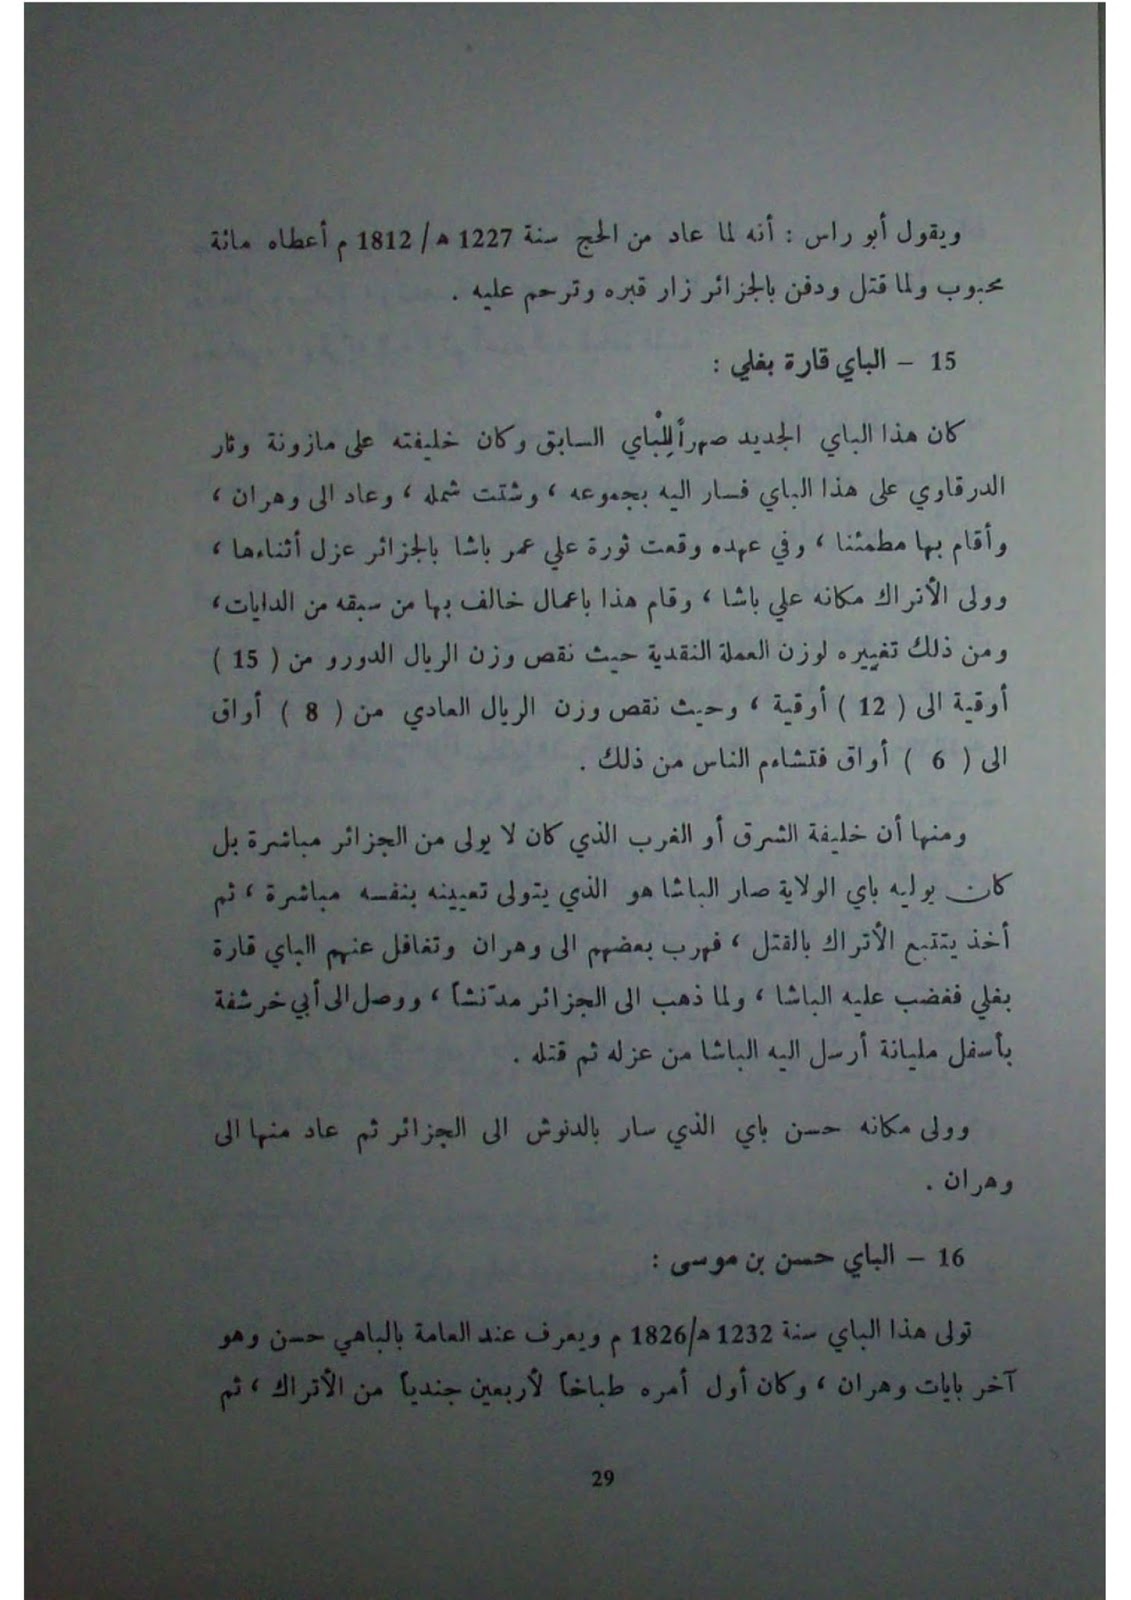 ويقول أبو راس : أنه لما عاد من الحج سنة 1227 ه/ 1812 م أعطاه مائة
محبوب ولما قتل ودفن بالجزائر زار قبره وترحم عليه .
15 – الباي قارة بغلي :
كان هذا الباي الجديد صهراً للْباي السابق وكان خليفته على مازونة وثار
الدرقاوي على هذا الباي فسار اليه بجموعه ، وشتت شمله ، وعاد الى وهران ،
وأقام بها مطمئنا ، وفي عهده وقعت ثورة علي عمر باشا بالجزائر عزل أثناءها ،
وولى الأتراك مكانه علي باشا ، وقام هذا باعمال خالف بها من سبقه من الدايات،
ومن ذلك تغييره لوزن العملة النقدية حيث نقص وزن الريال الدورو من ( 15 )
أوقية الى ( 12 ) أوقية ، وحيث نقص وزن الريال العادي من ( 8 ) أواق
الى ( 6 ) أواق فتشاءم الناس من ذلك .
ومنها أن خليفة الشرق أو الغرب الذي كان لا يولى من الجزائر مباشرة بل
كان يوليه باي الولاية صار الباشا هو الذي يتولى تعيينه بنفسه مباشرة ، ثم
أخذ يتتبع الأتراك بالقتل ، فهرب بعضهم الى وهران وتغافل عنهم الباي قارة
بغلي فغضب عليه الباشا ، ولما ذهب الى الجزائر مدّنشاً ، ووصل الى أبي خرشفة
بأسفل مليانة أرسل اليه الباشا من عزله ثم قتله .
وولى مكانه حسن باي الذي سار بالدنوش الى الجزائر ثم عاد منها الى
وهران .
16 – الباي حسن بن موسى :
تولى هذا الباي سنة 1232 ه/1826 م ويعرف عند العامة بالباهي حسن وهو
آخر بايات وهران ، وكان أول أمره طباخاً لأربعين جندياً من الأتراك ، ثم
29